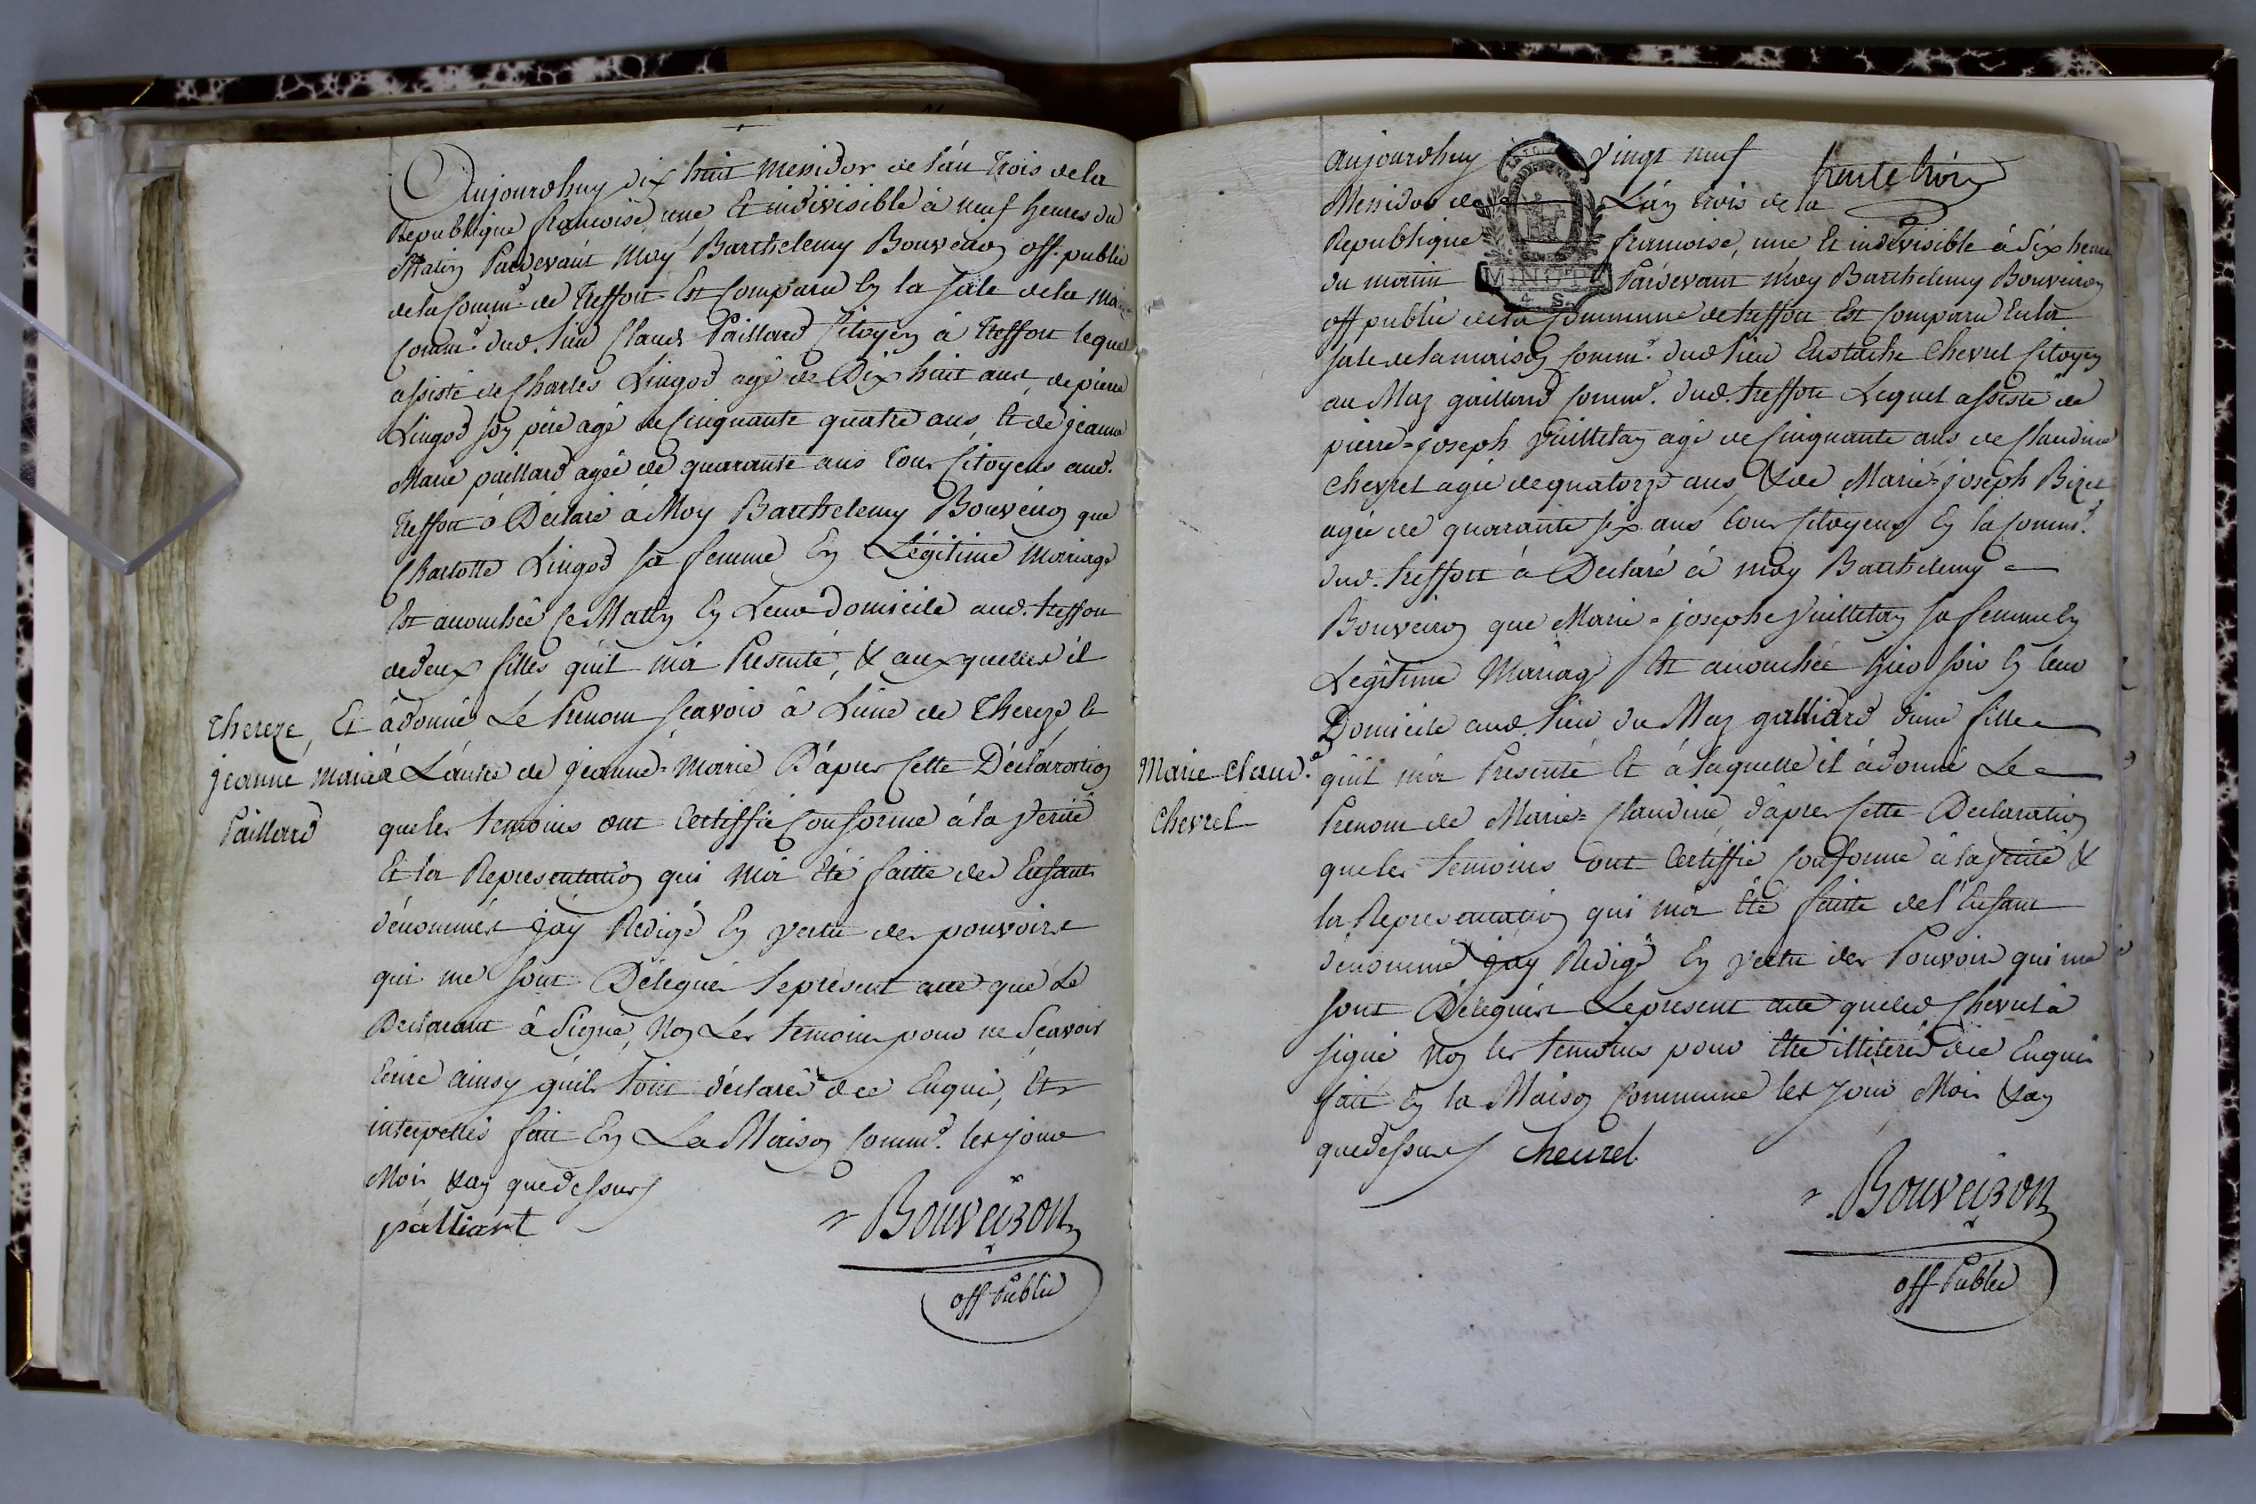 Aujourdhuy dix huit messidor de l'án trois de la
Republique françoise, une Et indivisible à neuf heures du
Matin Pardevánt Moy Barthelemy Bouveiron off. public
de la Comm.e de Treffort Est Comparu En la Sale de la Mai
Comm.e dud. Lieu Claude Paillard Citoyen à Treffort lequel
assisté de Charles Lingod agé de Dix huit ans de pierre
Lingod son pére agé de Cinquante quatre ans, Et de jeanne
Marie paillard agée de quarante ans tous Citoyens aud.
Treffort à Déclaré à Moy Barthelemy Bouveiron que
Charlotte Lingod sa femme En Légitime Mariage
Est accouchée Ce Matin En Leur Domicile aud. treffort
de deux filles qúil m'a Presenté, & auxquelles il
à donné Le Prenom Sçavoir à L'une de Thereze, &
à L'autre de jeanne-Marie D'áprès Cette Déclaration
que les temoins ont Certiffié Conforme à la Vérité
Et la Representation qui m'a Eté faitte des Enfants
dénommés j'áy Redigé En Vertu des pouvoirs
qui me sont Délegués le présent acte que Le
Declarant à Signé, Non Les temoins pour ne Sçavoir
Ecrire ainsy qúils l'ont déclaré de ce Enquis, Et
interpellés fait En La Maison Comm.e les jour
Mois & an que dessus
palliart
Bouveiron
off Public
Thereze, Et
jeanne Marie
Paillard
trente trois
aujourdhuy vingt neuf
Messidor de L'án trois de la
Republique françoise, une Et indivisible à Six heures
du matin Pardevant Moy Barthelemy Bouveiron
MINUTE
4. S.
off public de la Commune de treffort Est Comparu En la
Sale de la maison Comm.e dud. lieu Eustache Chevrel Citoyen
au Maz gaillard Comm.e dud. treffort Lequel assisté de
pierre-joseph Vuilletan agé de Cinquante ans de Claudine
Chevrel agée de quatorze ans & de Marie-joseph Bizet
agée de quarante six ans tous Citoyens En la Comm.e
dud. treffort à Declaré à moy Barthelemy
Bouveiron que Marie-josephe Vuilletan sa femme En
Légitime Mariag Est accouchée hier soir En leur
Domicile aud. lieu du Maz galliard d'une fille
qúil m'a Presenté Et à laquelle il à donné Le
Prenom de Marie-Claudine, d'áprès Cette Declaration
que les temoins ont Certiffié Conforme à la Vérité &
la Representation qui m'a Eté faitte de l'Enfant
dénommé j'ay Redigé En Vertu des Pouvoirs qui me
sont Délegués Le present acte que led Chevrel à
signé Non les temoins pour Etre illiterés de ce Enquis
fait En la Maison Commune les jour Mois & an
que dessus Cheurel
Bouveiron
off Public
Marie-Claud.e
Chevrel